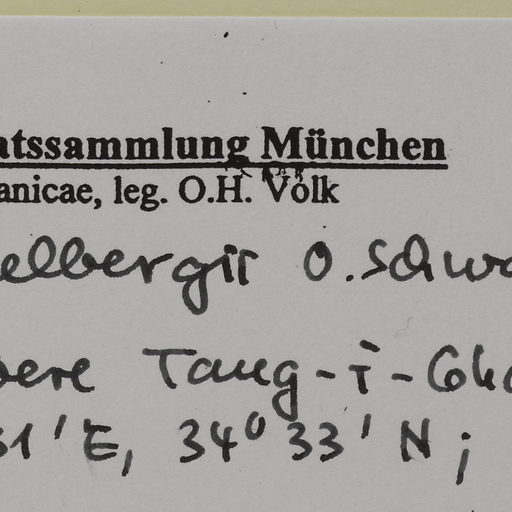 atssammlung München
anicae, leg. O.H. Volk
elbergii O. Schwa
bere Tang-i-Gha
31' E, 34° 33' N;